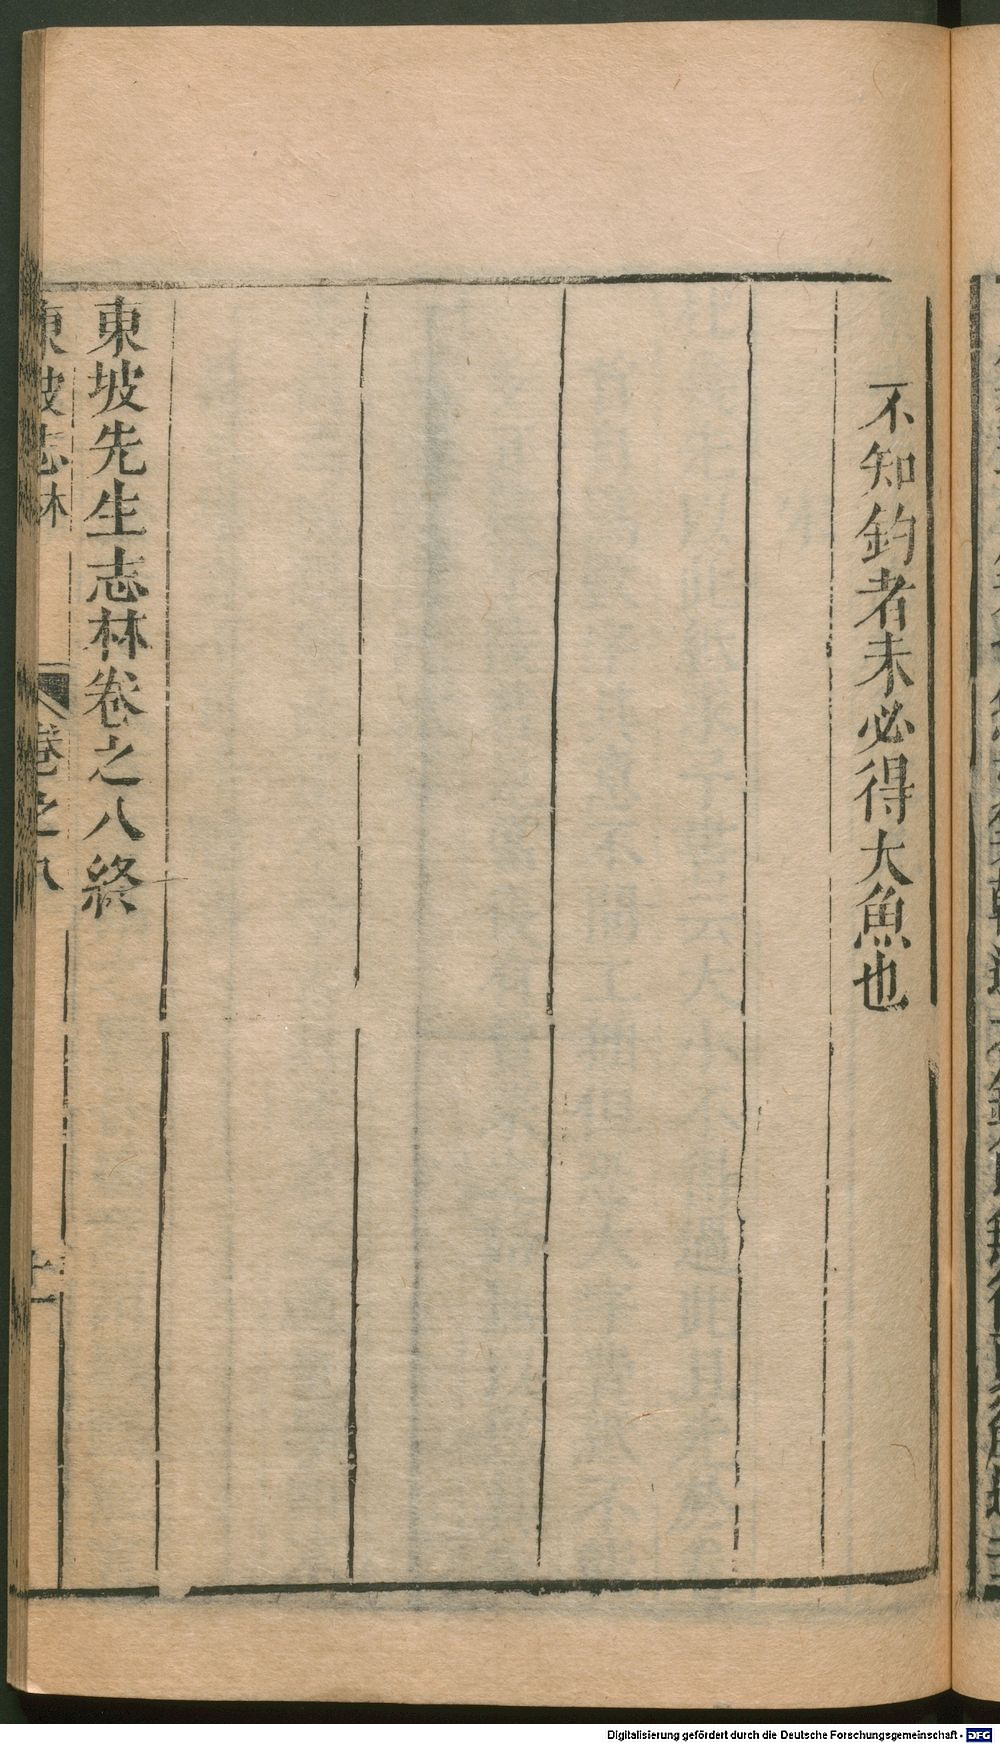 不知釣者未必得大魚也
東坡先生志林卷之八終
東坡志林 卷之八 十一
Digitalisierung gefördert durch die Deutsche Forschungsgemeinschaft - DFG